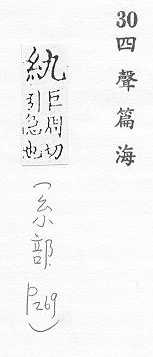 30四聲篇海
巨周切
引急也
(糸部 P269)